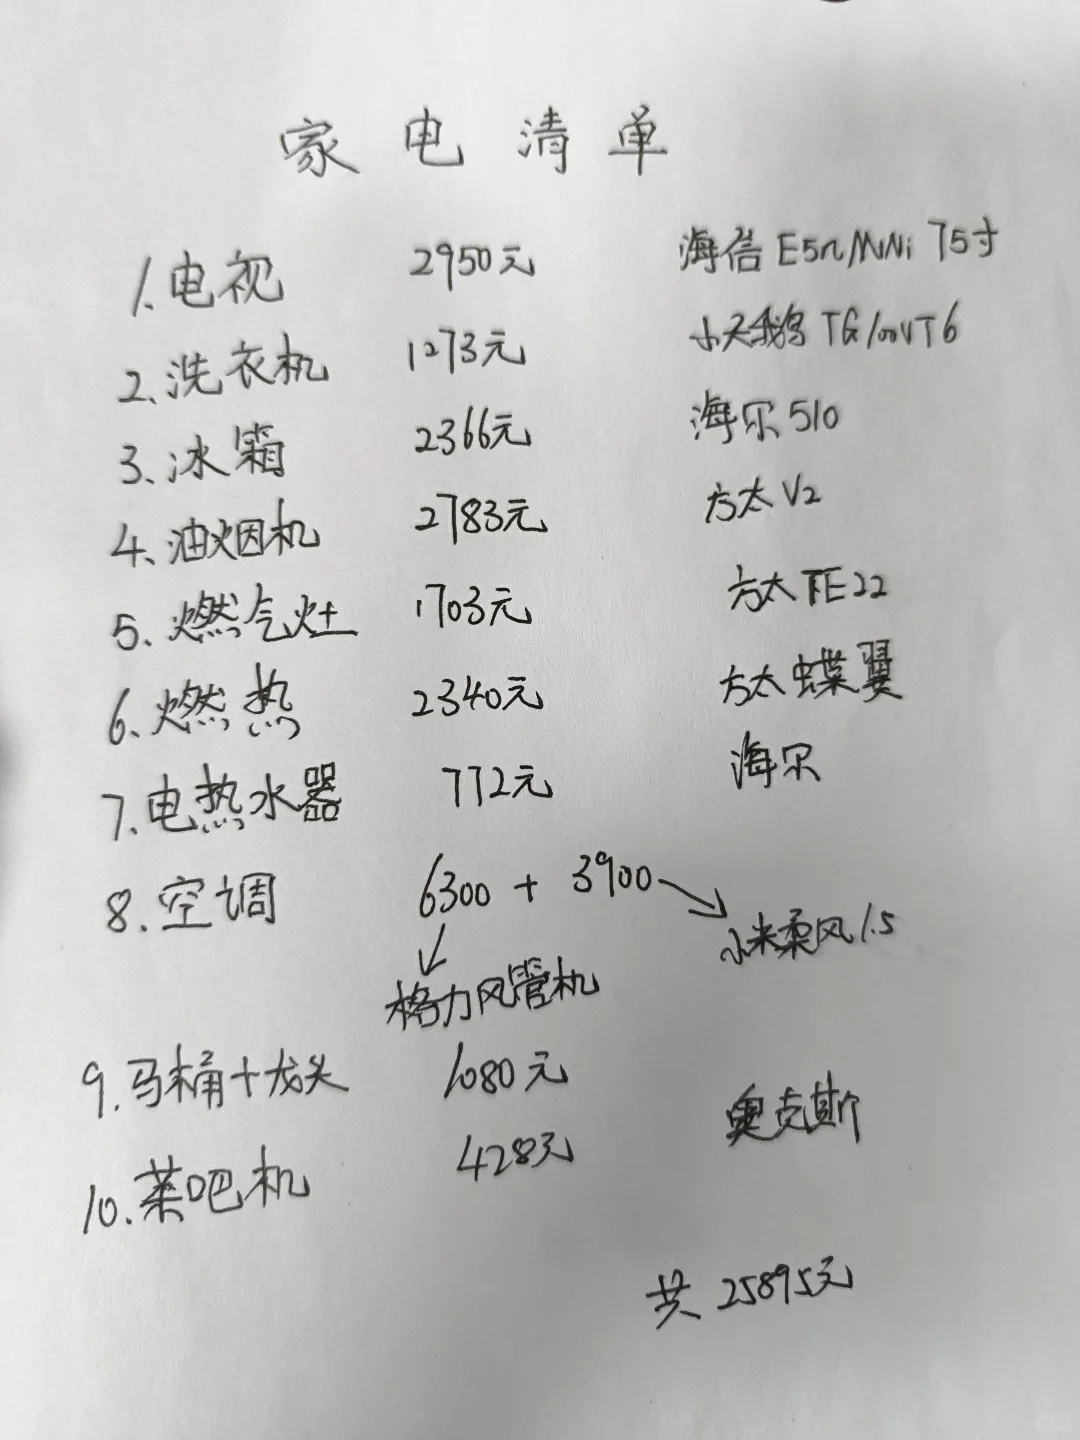 家电清单
1.电视 2950元 海信E5n MiNi 75寸
2、洗衣机 1273元 小天鹅 TG100VT6
3、冰箱 2366元 海尔510
4、油烟机 2783元 方太V2
5、燃气灶 1703元 方太TE22
6、燃热 2340元 方太蝶翼
7.电热水器 772元 海尔
8.空调 6300 + 3900 小米柔风1.5
格力风管机
9.马桶+龙头 1080元 奥克斯
10.茶吧机 428元
共 25895元